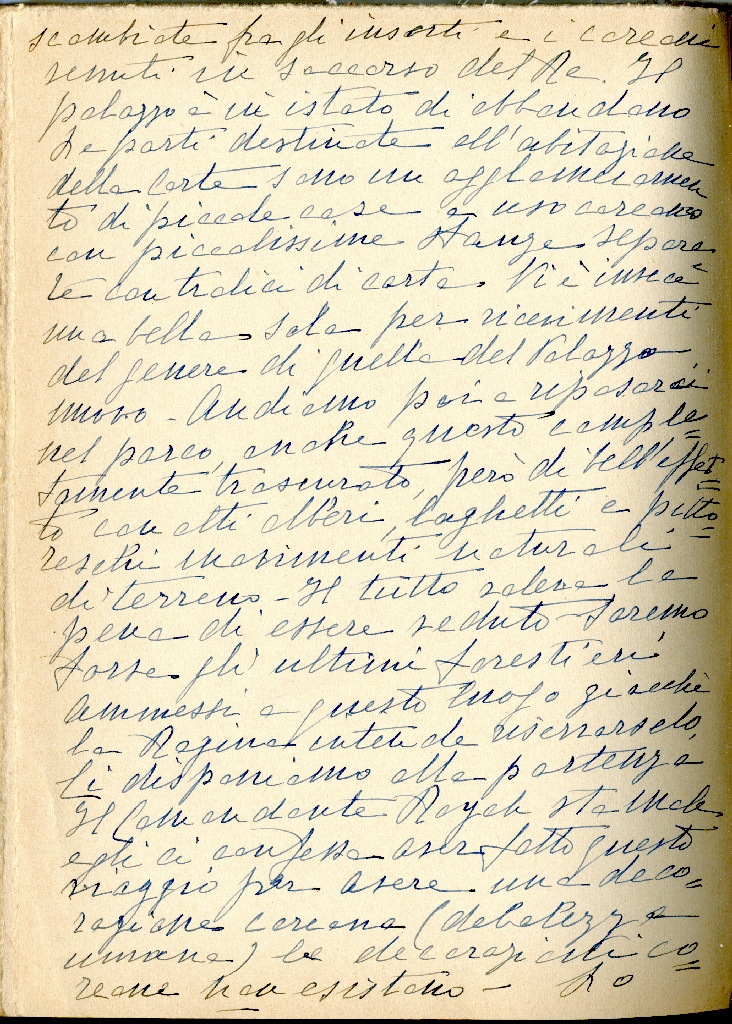 scambiate fra gli insorti e i coreani
venuti in soccorso del Re. Il
palazzo è in istato di abbandono
Le parti destinate all'abitazione
della Corte sono un agglomeramen
to di piccole case a uso coreano
con piccolissime stanze separa=
te con tralici di carta. Vi è invece
una bella sala per ricevimenti
del genere di quella del Palazzo
nuovo - Andiamo poi a riposarci
nel parco, anche questo comple=
tamente trascurato, però di bell'effet=
to con alti alberi, laghetti e pitto=
reschi movimenti naturali
di terreno - Il tutto valeva la
pena di essere veduto - Saremo
forse gli ultimi forestieri
ammessi a questo luogo giacchè
la Regina intende riserrarselo.
Ci disponiamo alla partenza
Il Comandante sta male
egli ci confessa aver fatto questo
viaggio per avere una deco=
razione coreana (debolezza
umana) le decorazioni co=
reane non esistono - Lo